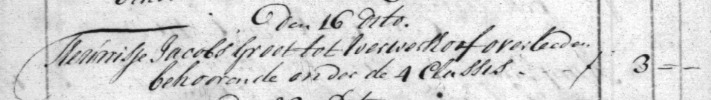 Den 16 dito.
Meúnisje Jacobs Groot tot overleeden
behoorende onder de 4 Classis. - - f 3 = -